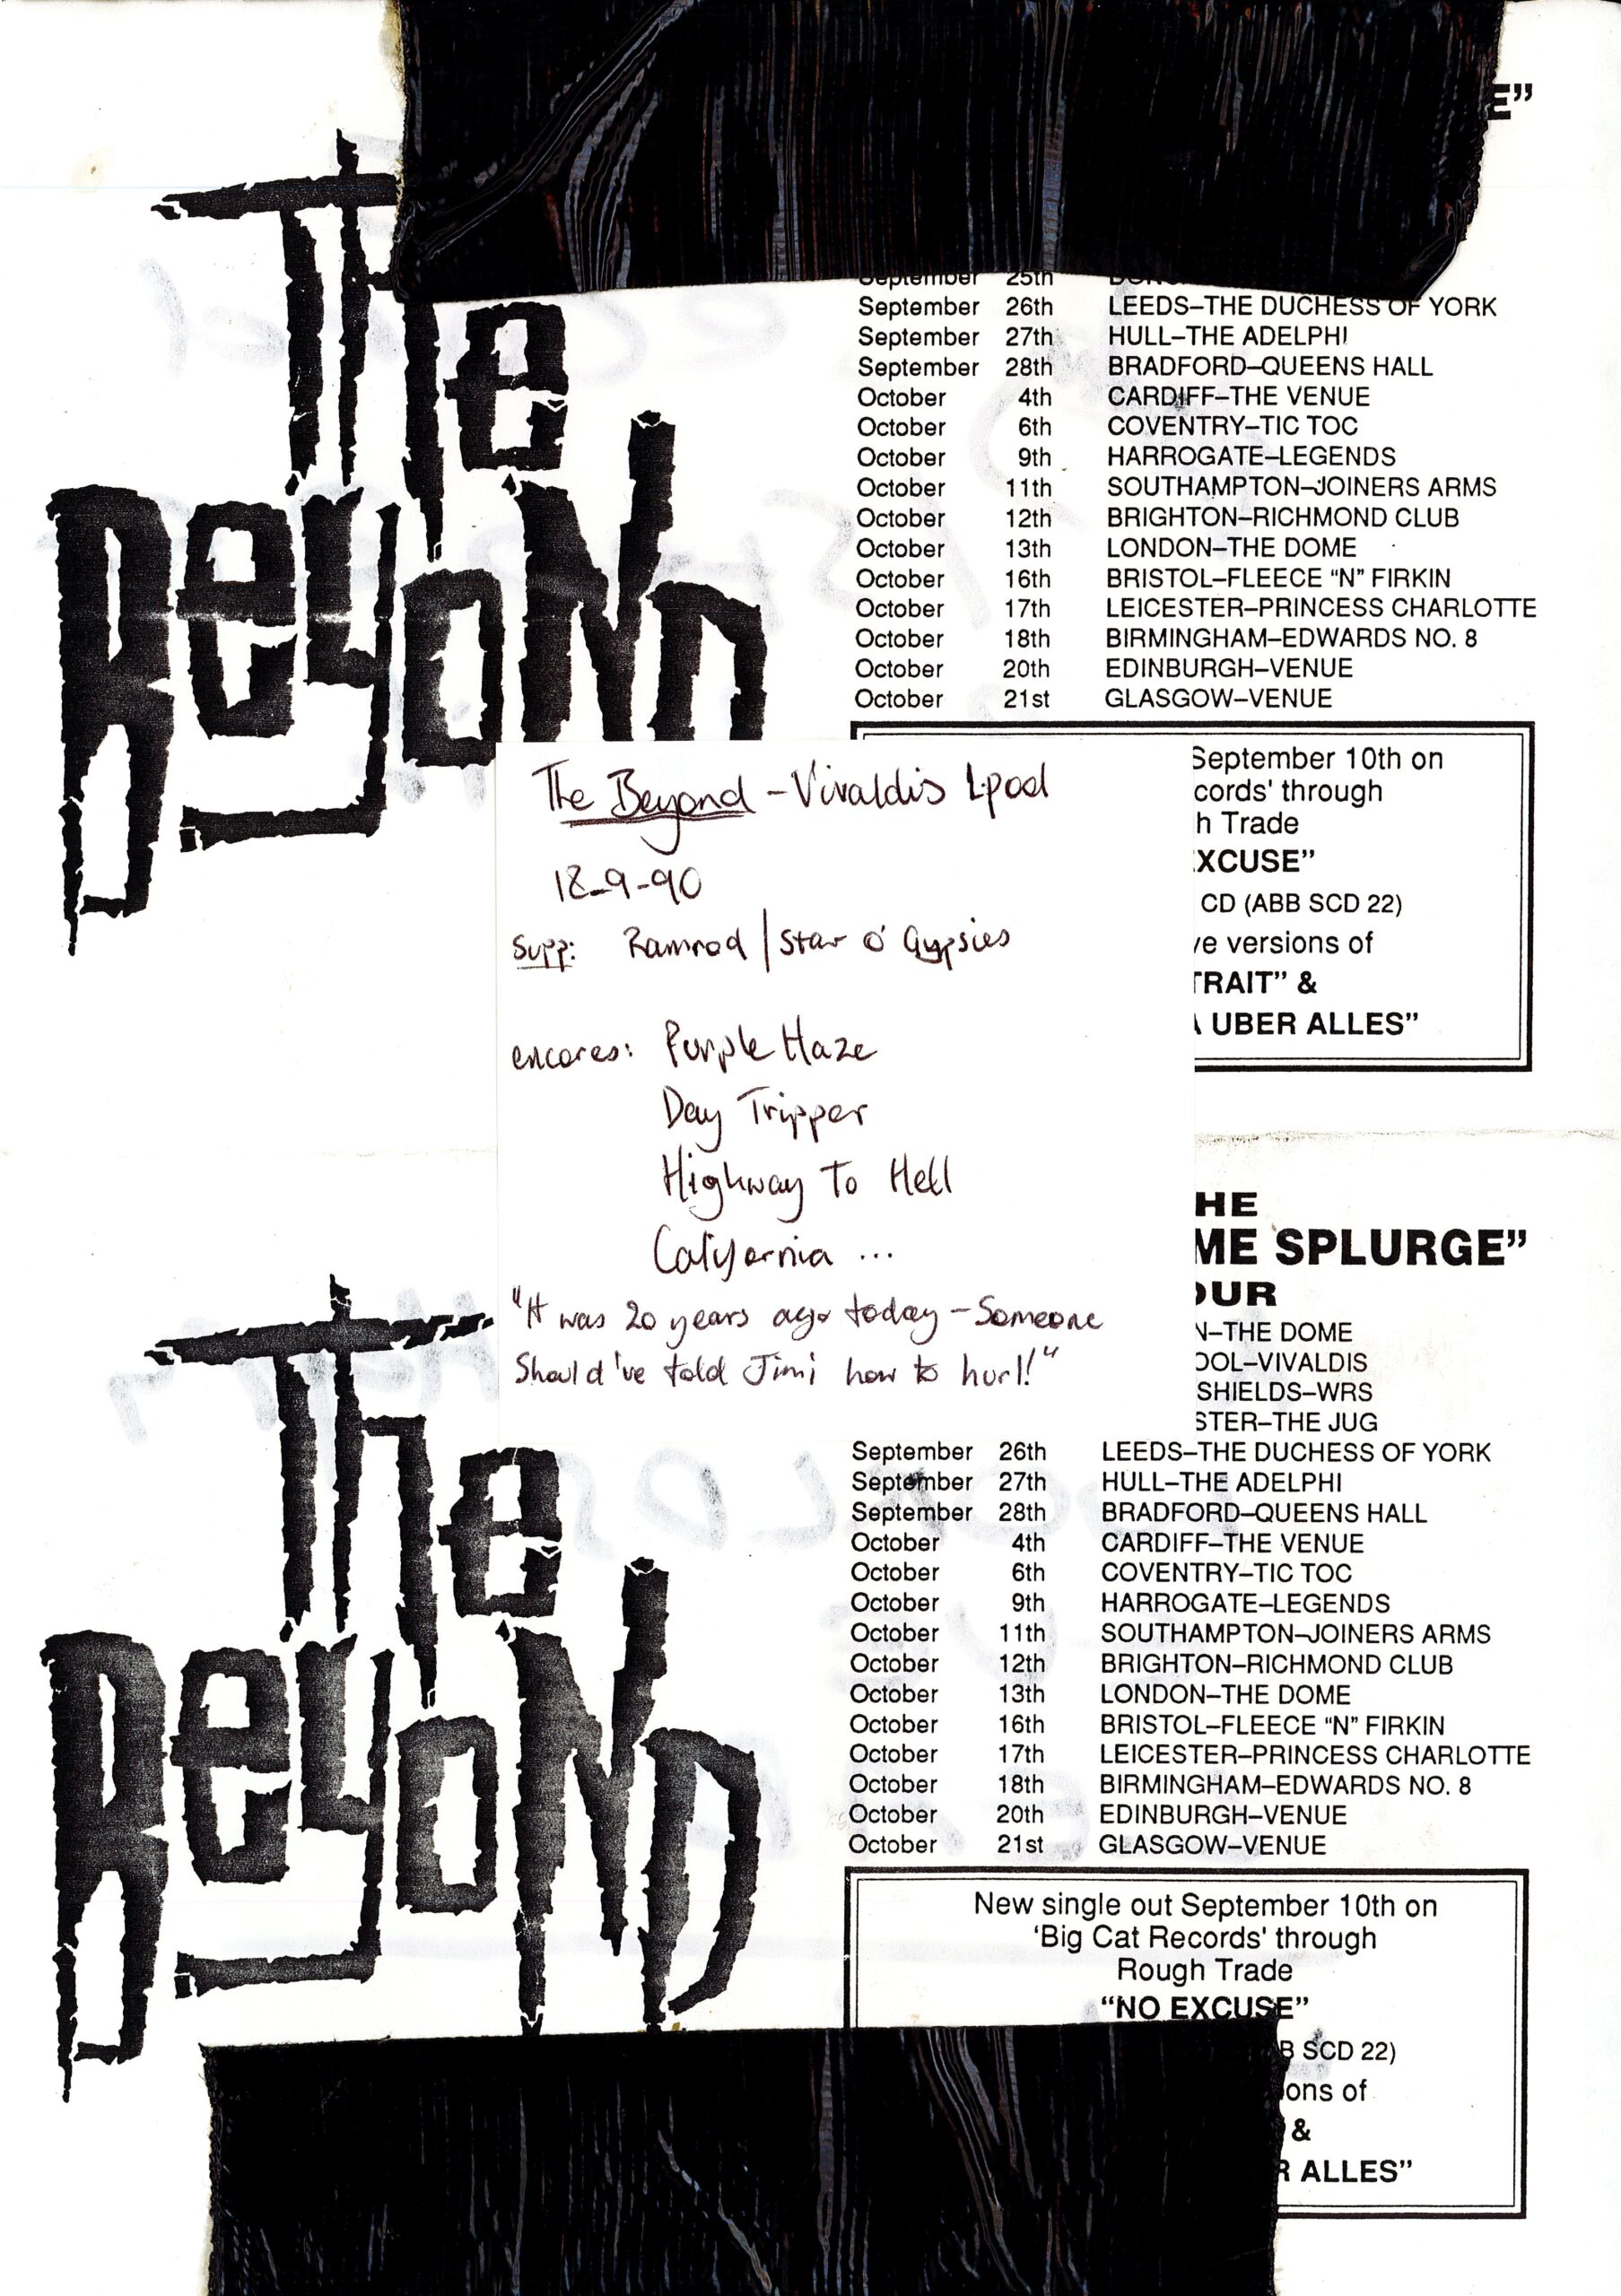 E”
The
Beyond
September 25th
September 26th LEEDS–THE DUCHESS OF YORK
September 27th HULL–THE ADELPHI
September 28th BRADFORD–QUEENS HALL
October 4th CARDIFF–THE VENUE
October 6th COVENTRY–TIC TOC
October 9th HARROGATE–LEGENDS
October 11th SOUTHAMPTON–JOINERS ARMS
October 12th BRIGHTON–RICHMOND CLUB
October 13th LONDON–THE DOME
October 16th BRISTOL–FLEECE “N” FIRKIN
October 17th LEICESTER–PRINCESS CHARLOTTE
October 18th BIRMINGHAM–EDWARDS NO. 8
October 20th EDINBURGH–VENUE
October 21st GLASGOW–VENUE
September 10th on
cords' through
h Trade
XCUSE”
CD (ABB SCD 22)
ve versions of
TRAIT” &
A UBER ALLES”
The Beyond – Vivaldis Lpool
18-9-90
Supp: Ramrod / Star o' Gypsies
encores: Purple Haze
Day Tripper
Highway To Hell
California ...
"It was 20 years ago today – Someone
Should've told Jimi how to hurl!"
HE
ME SPLURGE”
OUR
N–THE DOME
OOL–VIVALDIS
SHIELDS–WRS
STER–THE JUG
The
Beyond
September 26th LEEDS–THE DUCHESS OF YORK
September 27th HULL–THE ADELPHI
September 28th BRADFORD–QUEENS HALL
October 4th CARDIFF–THE VENUE
October 6th COVENTRY–TIC TOC
October 9th HARROGATE–LEGENDS
October 11th SOUTHAMPTON–JOINERS ARMS
October 12th BRIGHTON–RICHMOND CLUB
October 13th LONDON–THE DOME
October 16th BRISTOL–FLEECE “N” FIRKIN
October 17th LEICESTER–PRINCESS CHARLOTTE
October 18th BIRMINGHAM–EDWARDS NO. 8
October 20th EDINBURGH–VENUE
October 21st GLASGOW–VENUE
New single out September 10th on
‘Big Cat Records' through
Rough Trade
“NO EXCUSE”
B SCD 22)
ons of
&
R ALLES”